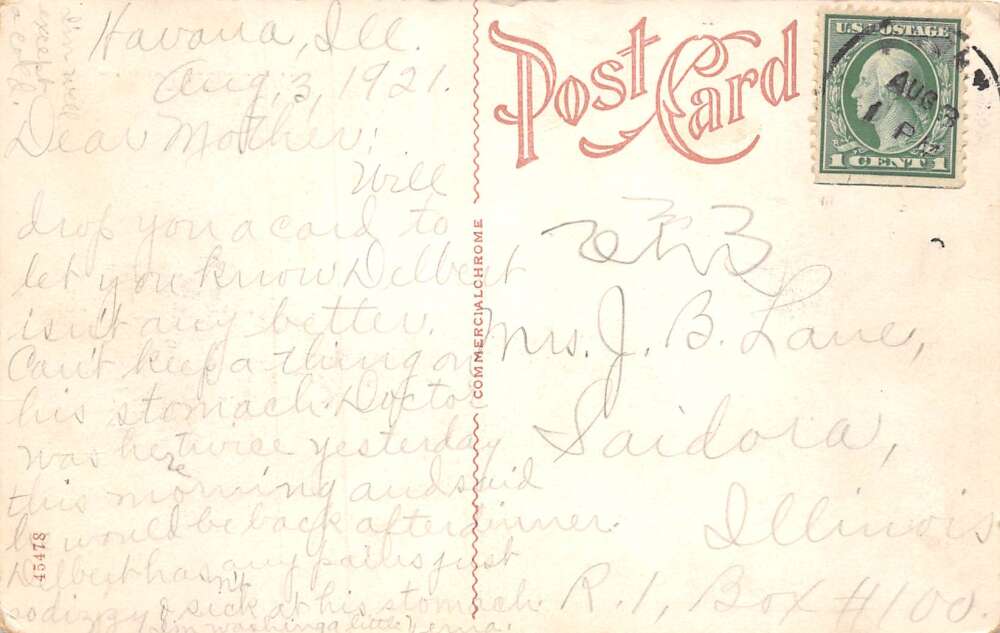 Havana, Ill.
Aug, 3, 1921.
Dear Mother;
Will
drop you a card to
let you know Delbert
isn't any better.
Can't keep a thing on
his stomach. Doctor
was here twice yesterday
this morning and said
he would be back after dinner.
Delbert hasn't any pains just
so dizzy & sick at his stomach.
I'm washing a little
Post Card
COMMERCIALCHROME
45478
U.S. POSTAGE
1 CENT 1
AUG 3
1 PM
Mrs. J. B. Lane,
Saidora,
Illinois
R. 1, Box #100.